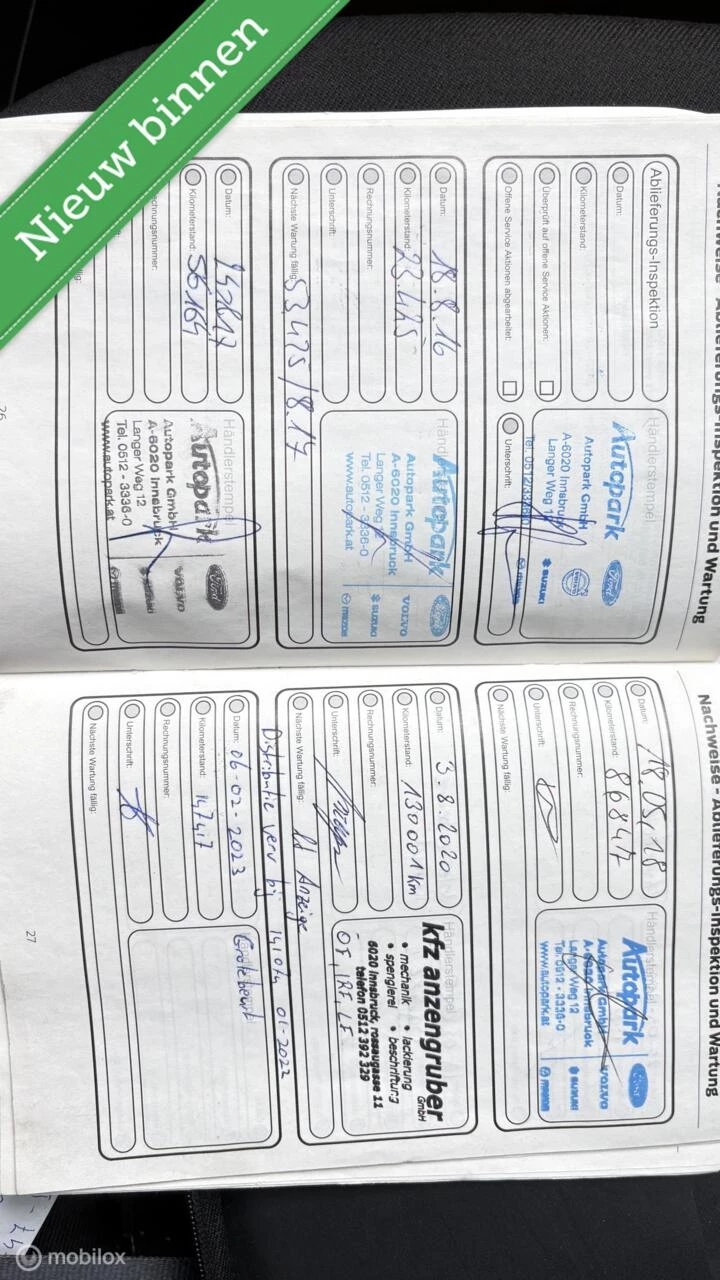 Nieuw binnen
Nachweise - Ablieferungs-Inspektion und Wartung
Ablieferungs-Inspektion
Datum:
Kilometerstand:
Überprüft auf offene Service Aktionen:
Offene Service Aktionen abgearbeitet:
Händlerstempel
Autopark
Autopark GmbH
A-6020 Innsbruck
Langer Weg 12
Ford
SUZUKI
mazda
Unterschrift:
Datum: 18.8.16
Kilometerstand: 23.475
Rechnungsnummer:
Unterschrift:
Nächste Wartung fällig: 53,475 / 8.17
Autopark
Autopark GmbH
A-6020 Innsbruck
Langer Weg
Tel. 0512 - 3336-0
www.autopark.at
VOLVO
SUZUKI
mazda
Datum:
Kilometerstand: 56164
Händlerstempel
Autopark
Autopark GmbH
A-6020 Innsbruck
Langer Weg 12
Tel. 0512 - 3336-0
www.autopark.at
Ford
VOLVO
26
Nachweise - Ablieferungs-Inspektion und Wartung
Datum: 18.05.18
Kilometerstand: 86847
Rechnungsnummer:
Unterschrift:
Nächste Wartung fällig:
Händlerstempel
Autopark
Autopark GmbH
A-6020 Innsbruck
Langer Weg 12
Tel. 0512 - 3336-0
www.autopark.at
Ford
VOLVO
SUZUKI
mazda
Datum: 3.8.2020
Kilometerstand: 130001 km
Rechnungsnummer:
Unterschrift:
Nächste Wartung fällig: Anzeige
Händlerstempel
kfz anzengruber
GmbH
• mechanik • lackierung
• spenglerei • beschriftung
6020 innsbruck, rossaugasse 11
telefon 0512 392 329
Distributie verv bij 01-2022
Datum: 06-02-2023
Kilometerstand: 147417
Rechnungsnummer:
Unterschrift:
Nächste Wartung fällig:
Grote beurt
27
mobilox